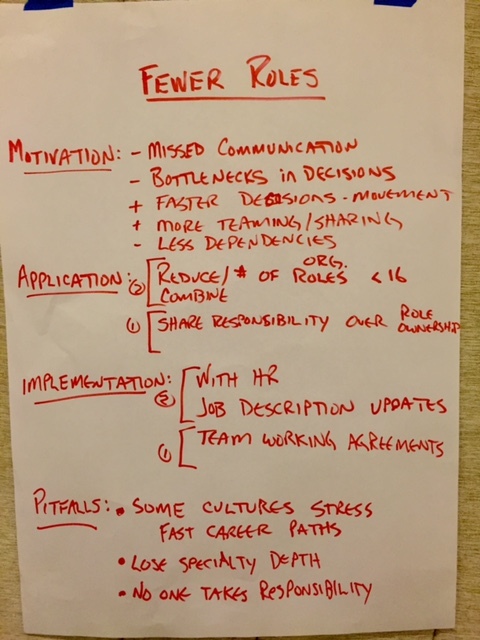 FEWER ROLES
MOTIVATION: - MISSED COMMUNICATION
- BOTTLENECKS in DECISIONS
+ FASTER DECISIONS - MOVEMENT
+ MORE TEAMING/SHARING
- LESS DEPENDENCIES
APPLICATION: ② REDUCE/ # OF ORG. ROLES < 16
COMBINE
① SHARE RESPONSIBILITY OVER ROLE OWNERSHIP
IMPLEMENTATION: ② WITH HR
JOB DESCRIPTION UPDATES
① TEAM WORKING AGREEMENTS
PITFALLS: • SOME CULTURES STRESS
FAST CAREER PATHS
• LOSE SPECIALTY DEPTH
• NO ONE TAKES RESPONSIBILITY